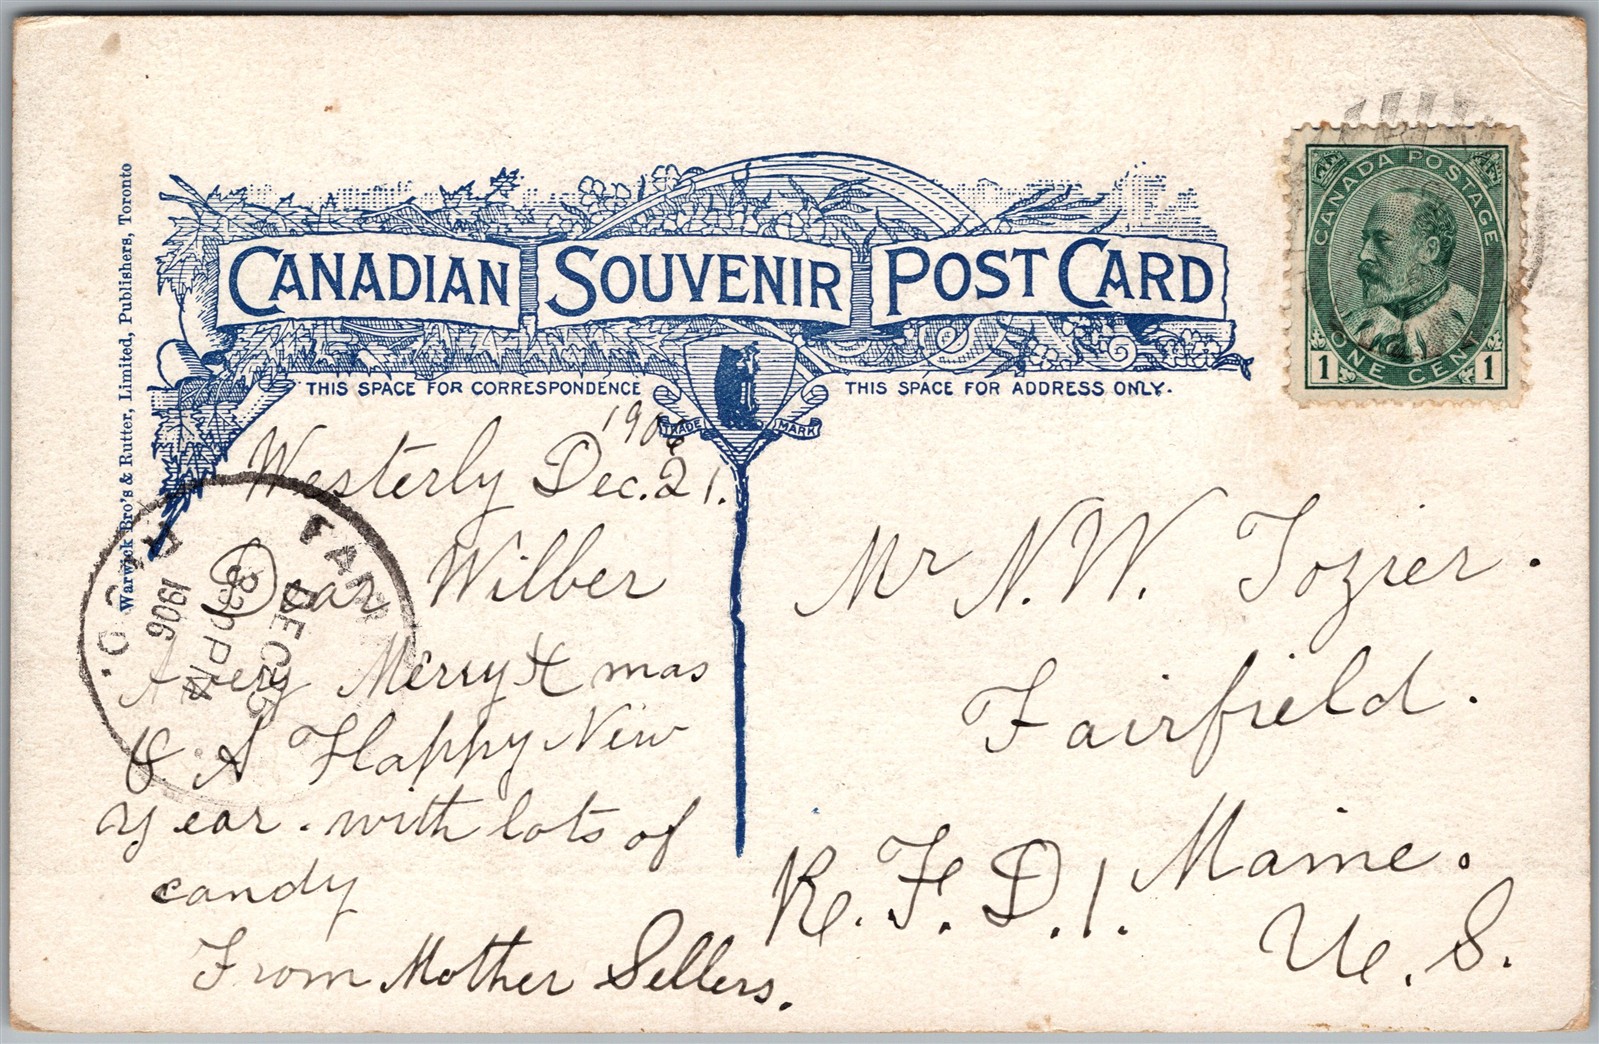 Warwick Bro's & Rutter, Limited, Publishers, Toronto
CANADIAN SOUVENIR POST CARD
THIS SPACE FOR CORRESPONDENCE
THIS SPACE FOR ADDRESS ONLY.
TRADE MARK
CANADA POSTAGE
ONE CENT
1 1
1906
Westerly Dec. 21.
Dear Wilber
A very Merry X mas
& A Happy New
year. with lots of
candy
From Mother Sellers.
Mr N. W. Tozier.
Fairfield.
Maine.
R. F. D. 1.
U. S.
DEC 25
PM
1906